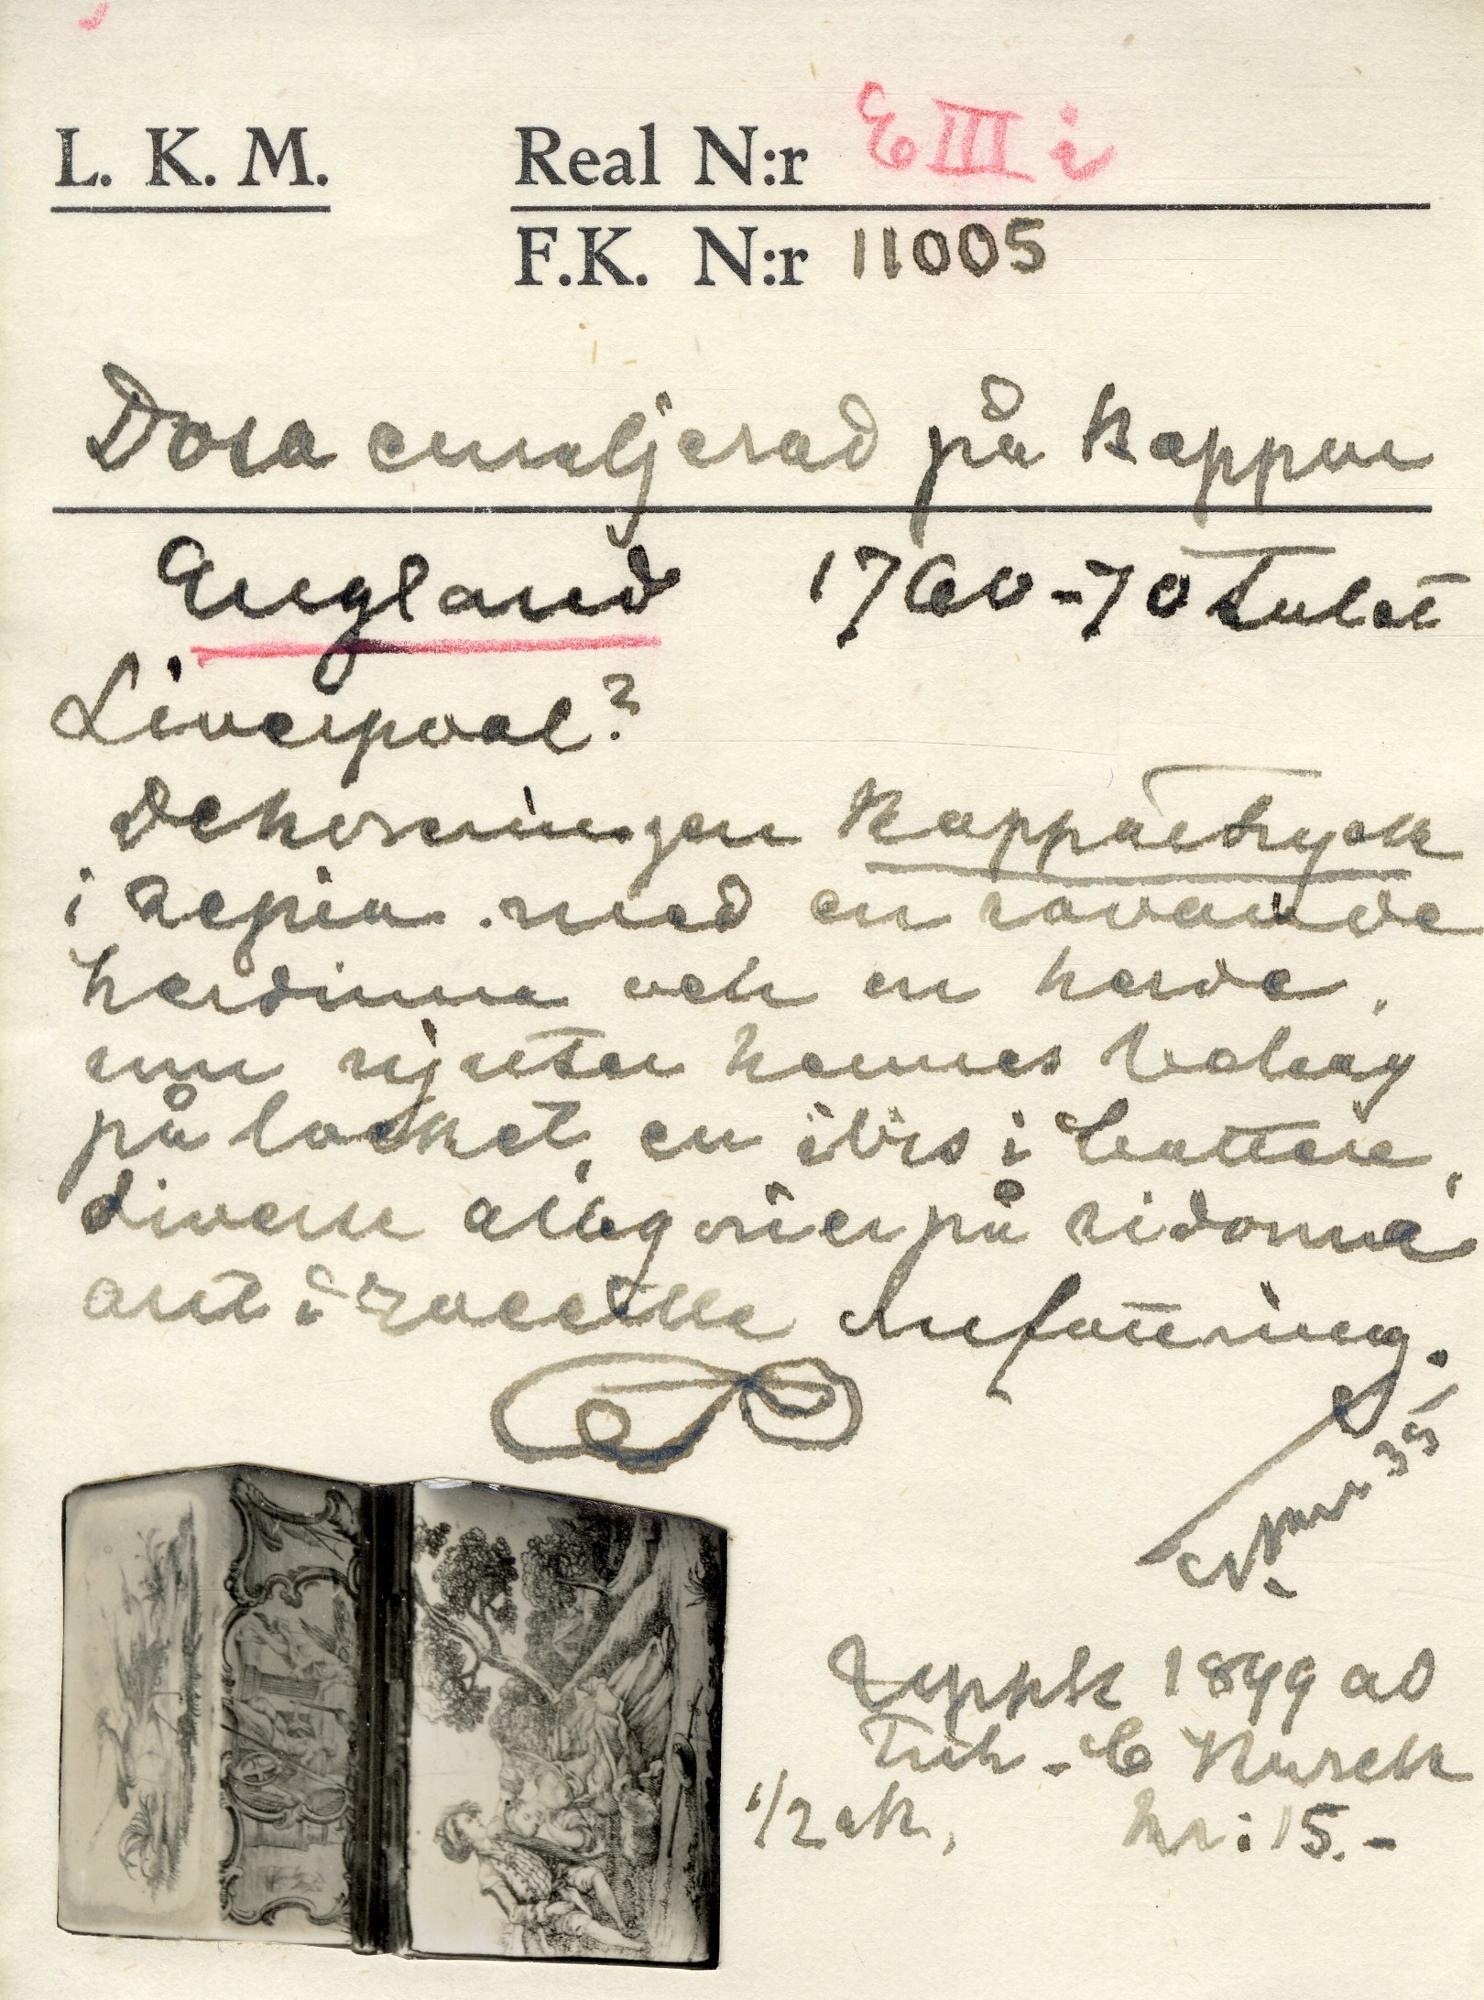 L. K. M. Real N:r E III i
F.K. N:r 11005
Dosa emaljerad på Koppar
England 1760-70 talet
Liverpool?
Dekoreringen Koppartryck
i sepia med en sovande
herdinna och en herde,
som njuter hennes behag
på locket, en ibis i botten,
diverse allegorier på sidorna
allt i
infattning.
35
1899 av
C Kurck
1/2 sk. kr: 15.-